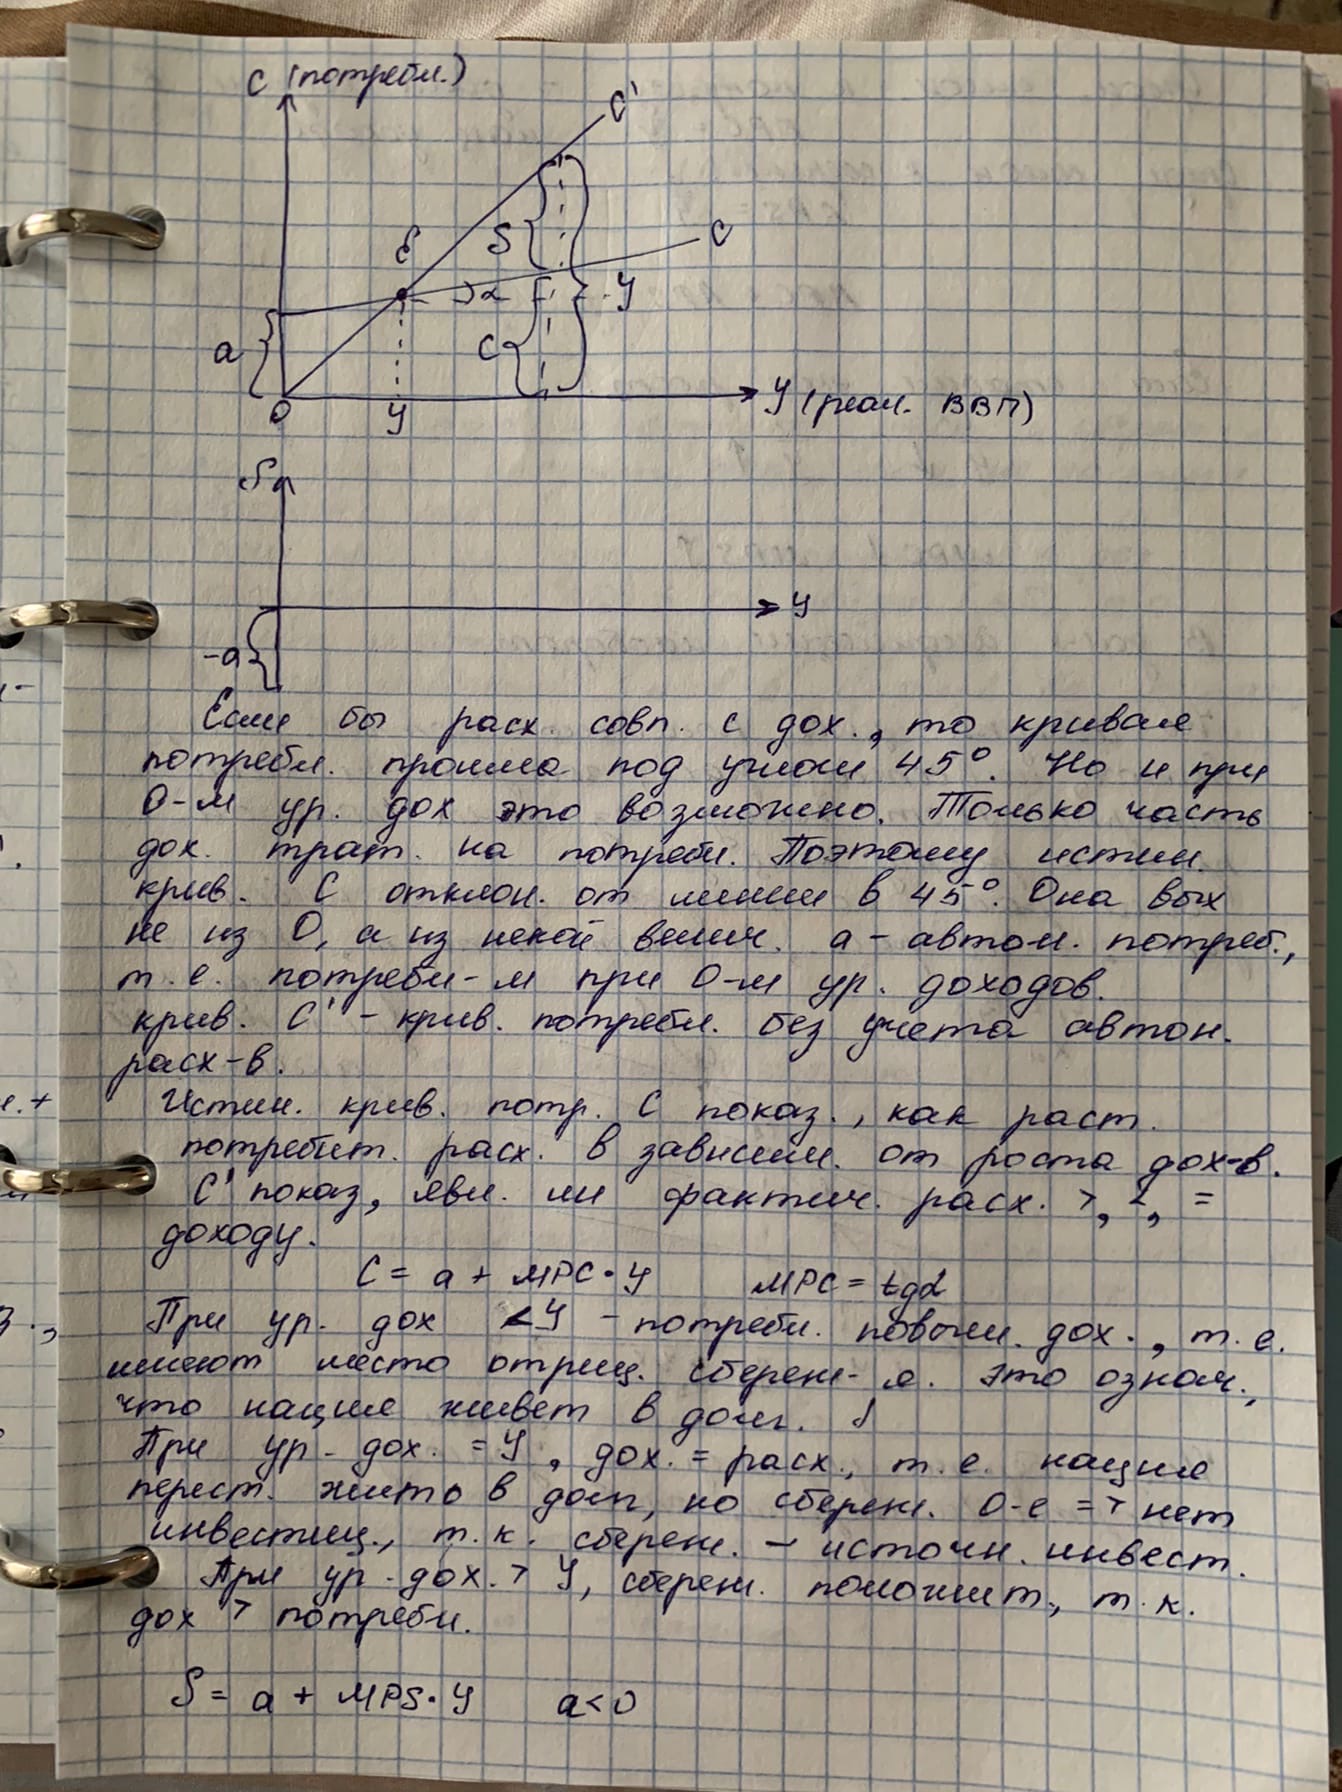 C (потребл.)
C'
E
S
C
α
y
a
C
0
y
y (реал. ВВП)
S
y
-a
Если бы расх. совп. с дох., то кривая
потребл. прошла под углом 45°. Но и при
0-м ур. дох это возможно. Только часть
дох. трат. на потребл. Поэтому истин.
крив. C отклон. от линии в 45°. Она вых
не из 0, а из некой велич. a - автон. потреб.,
т.е. потребл-м при 0-м ур. доходов.
крив. C' - крив. потребл. без учета автон.
расх-в.
Истин. крив. потр. C показ., как раст.
потребит. расх. в зависим. от роста дох-в.
C' показ, явл. ли фактич. расх. >, <, =
доходу.
C = a + MPC · y MPC = tgα
При ур. дох < y - потребл. превыш. дох., т.е.
имеют место отриц. сбереж-я. Это означ.,
что нация живет в долг.
При ур. дох. = y, дох. = расх., т.е. нация
перест. жить в долг, но сбереж. 0-е => нет
инвестиц., т.к. сбереж. - источн. инвест.
При ур. дох. > y, сбереж. положит., т.к.
дох > потребл.
S = a + MPS · y a < 0